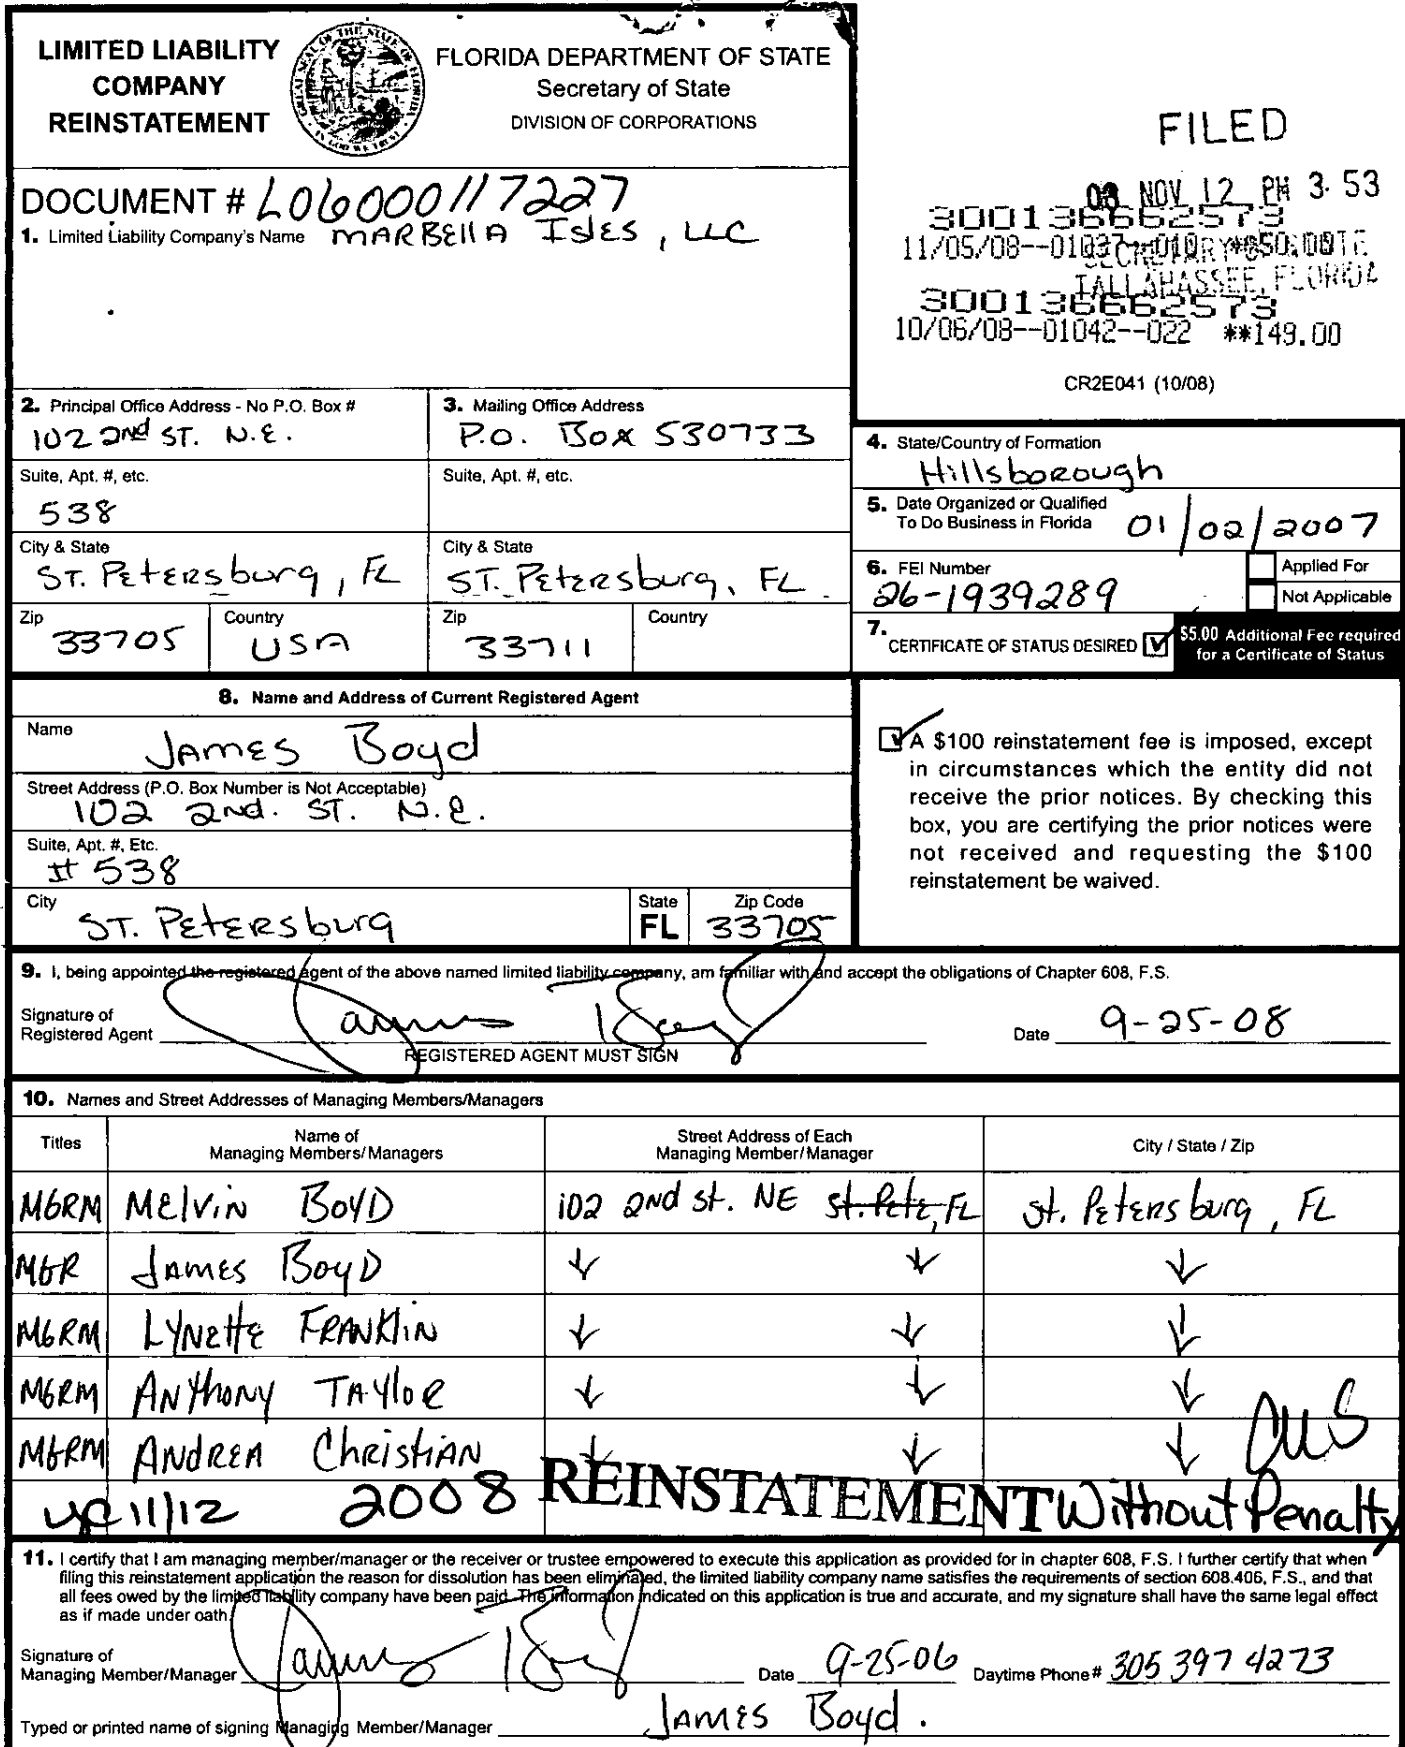 LIMITED LIABILITY
COMPANY
REINSTATEMENT
FLORIDA DEPARTMENT OF STATE
Secretary of State
DIVISION OF CORPORATIONS
FILED
08 NOV 12 PM 3:53
300136662573
11/05/08--01037--010 **50.00
SECRETARY OF STATE
TALLAHASSEE, FLORIDA
300136662573
10/06/08--01042--022 **149.00
CR2E041 (10/08)
DOCUMENT # L06000117227
1. Limited Liability Company's Name MARBELLA ISLES, LLC
2. Principal Office Address - No P.O. Box #
102 2nd ST. N.E.
3. Mailing Office Address
P.O. Box 530733
Suite, Apt. #, etc.
538
Suite, Apt. #, etc.
City & State
ST. Petersburg, FL
City & State
ST. Petersburg, FL
Zip
33705
Country
USA
Zip
33711
Country
4. State/Country of Formation
Hillsborough
5. Date Organized or Qualified
To Do Business in Florida 01/02/2007
6. FEI Number
26-1939289
Applied For
Not Applicable
7. CERTIFICATE OF STATUS DESIRED
$5.00 Additional Fee required
for a Certificate of Status
8. Name and Address of Current Registered Agent
Name
James Boyd
Street Address (P.O. Box Number is Not Acceptable)
102 2nd. ST. N.E.
Suite, Apt. #, Etc.
# 538
City
ST. Petersburg
State
FL
Zip Code
33705
A $100 reinstatement fee is imposed, except
in circumstances which the entity did not
receive the prior notices. By checking this
box, you are certifying the prior notices were
not received and requesting the $100
reinstatement be waived.
9. I, being appointed the registered agent of the above named limited liability company, am familiar with and accept the obligations of Chapter 608, F.S.
Signature of
Registered Agent James Boyd
REGISTERED AGENT MUST SIGN
Date 9-25-08
10. Names and Street Addresses of Managing Members/Managers
Titles
Name of
Managing Members/Managers
Street Address of Each
Managing Member/Manager
City / State / Zip
MGRM Melvin Boyd 102 2nd St. NE St. Pete, FL St. Petersburg, FL
MGR James Boyd
MGRM Lynette Franklin
MGRM Anthony Taylor
MGRM Andrea Christian
CUS
11/12 2008 REINSTATEMENT Without Penalty
11. I certify that I am managing member/manager or the receiver or trustee empowered to execute this application as provided for in chapter 608, F.S. I further certify that when
filing this reinstatement application the reason for dissolution has been eliminated, the limited liability company name satisfies the requirements of section 608.406, F.S., and that
all fees owed by the limited liability company have been paid. The information indicated on this application is true and accurate, and my signature shall have the same legal effect
as if made under oath.
Signature of
Managing Member/Manager James Boyd
Date 9-25-06 Daytime Phone # 305 397 4273
Typed or printed name of signing Managing Member/Manager James Boyd.